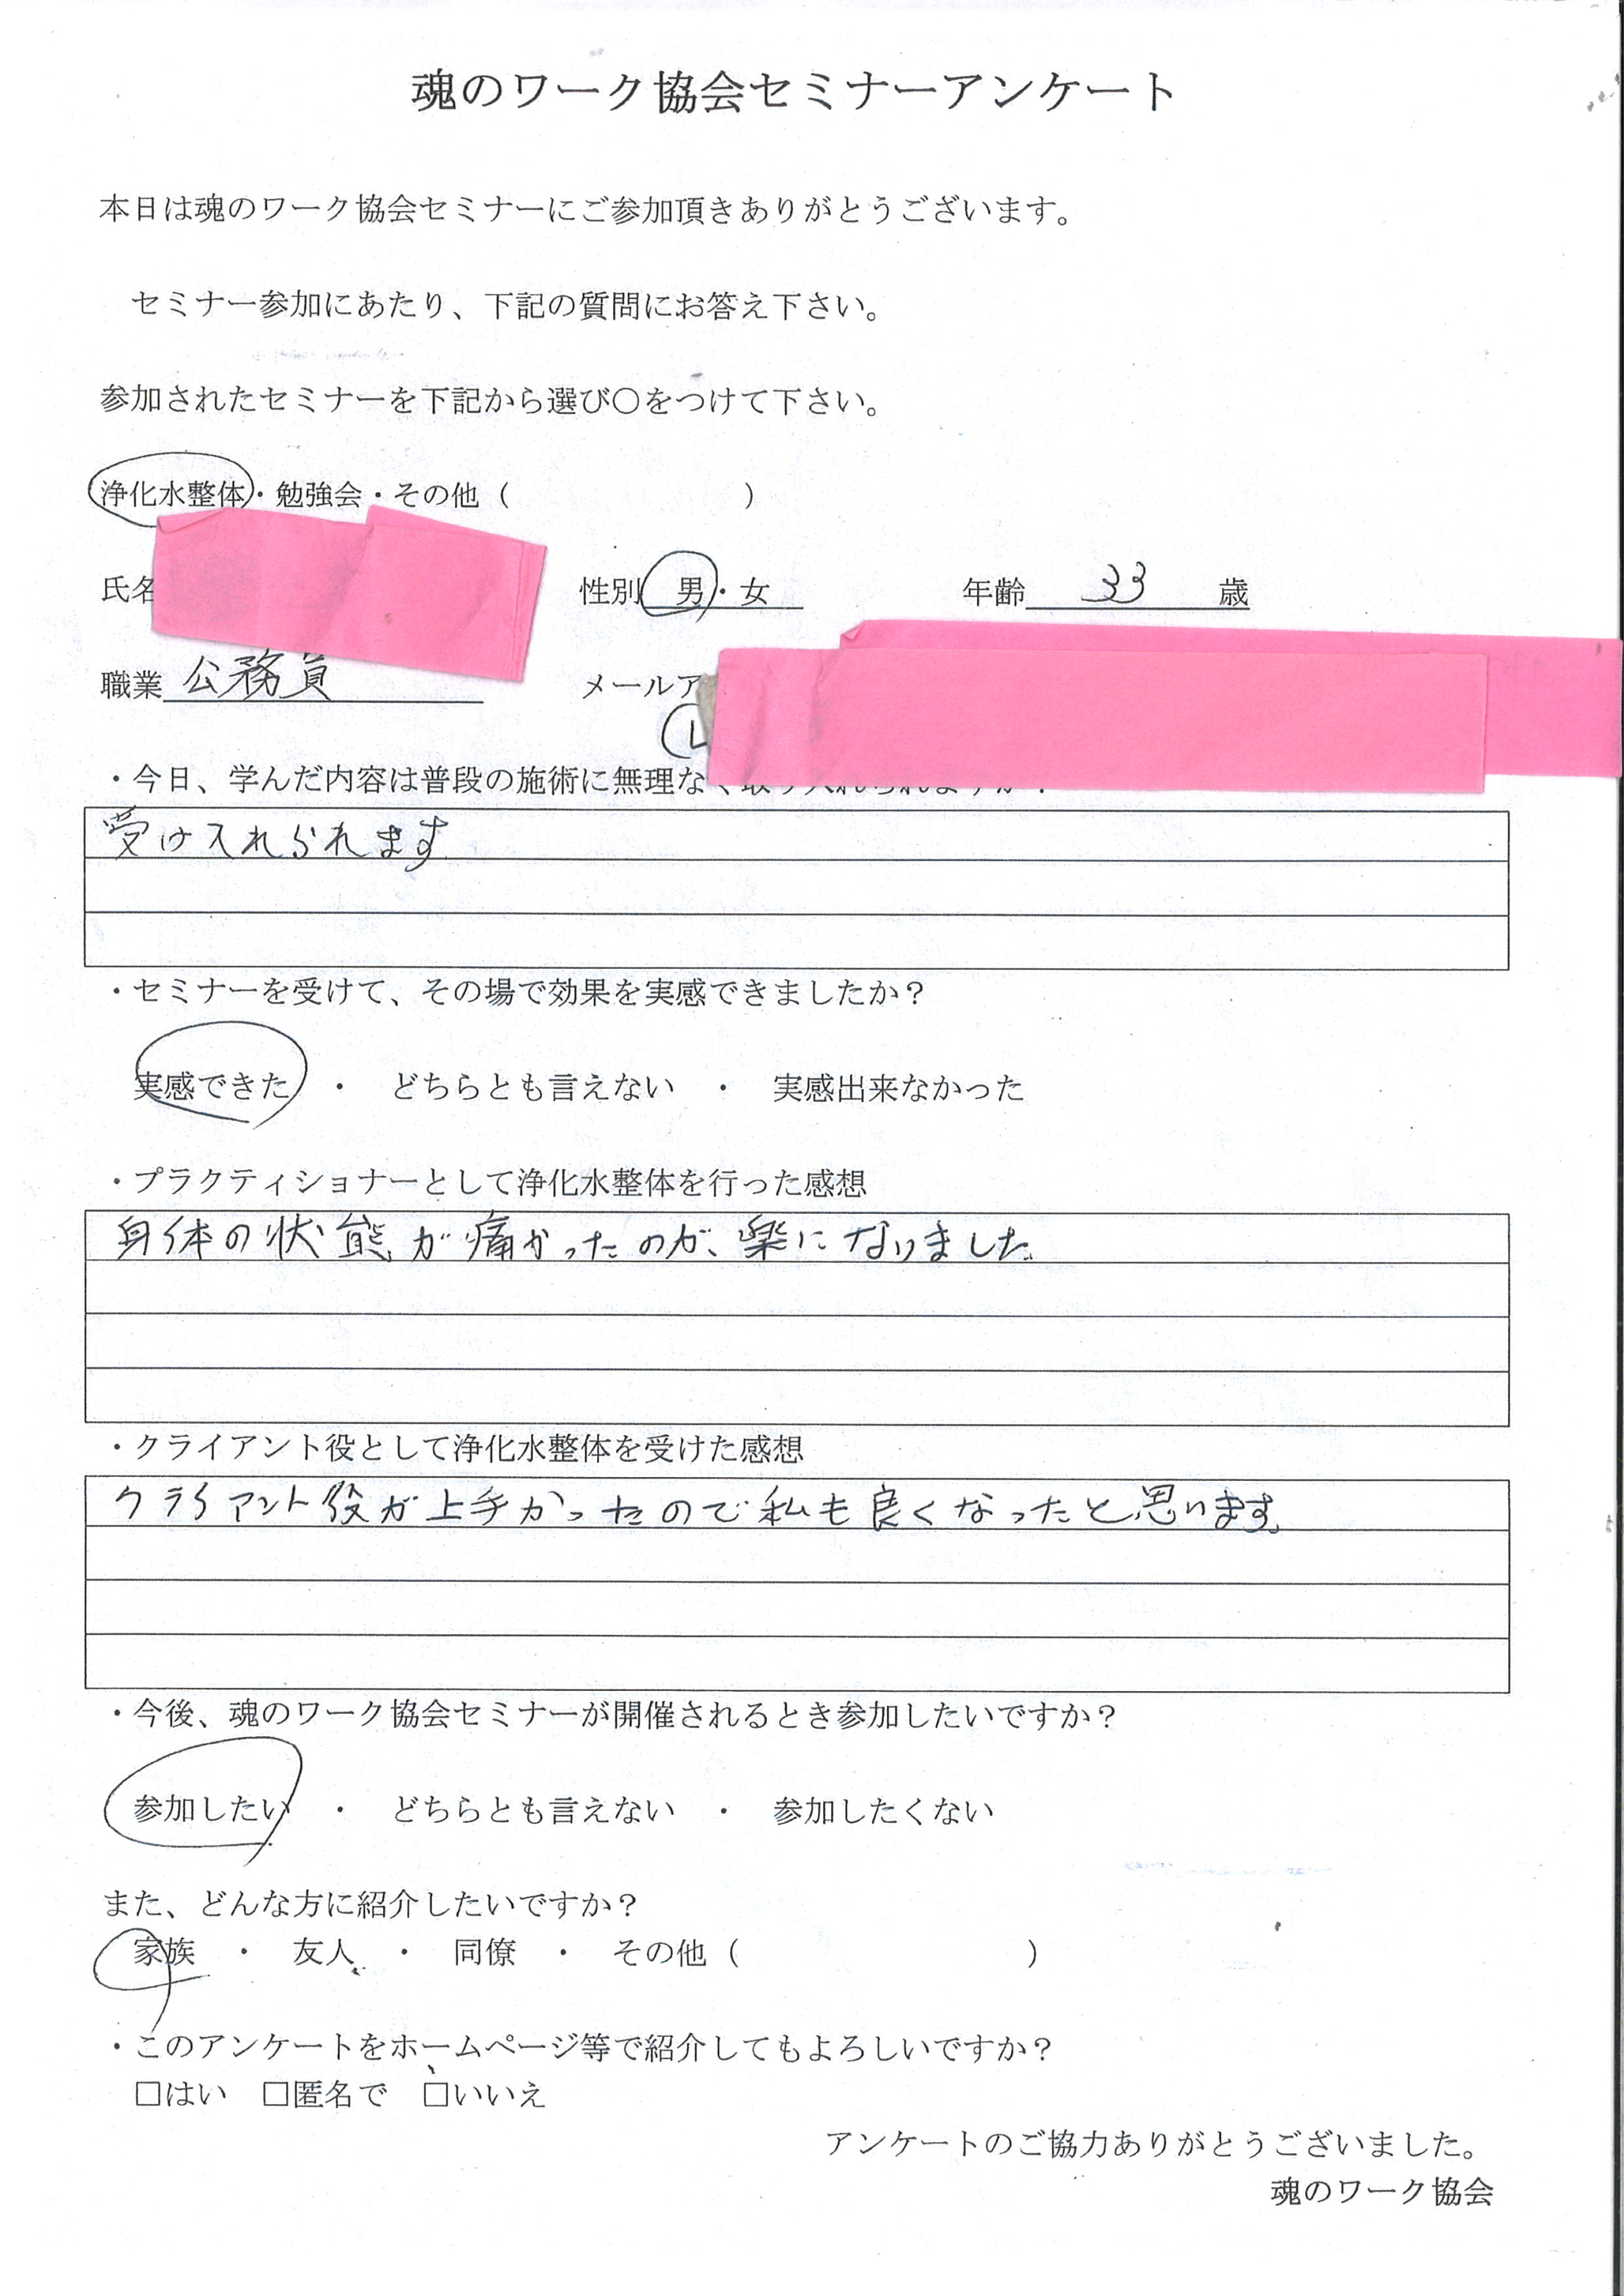 魂のワーク協会セミナーアンケート
本日は魂のワーク協会セミナーにご参加頂きありがとうございます。
セミナー参加にあたり、下記の質問にお答え下さい。
参加されたセミナーを下記から選び〇をつけて下さい。
浄化水整体・勉強会・その他（　　　　　　　）
氏名　性別　男・女　年齢 33 歳
職業 公務員　メールア
・今日、学んだ内容は普段の施術に無理なく取り入れられますか？
受け入れられます
・セミナーを受けて、その場で効果を実感できましたか？
実感できた　・　どちらとも言えない　・　実感出来なかった
・プラクティショナーとして浄化水整体を行った感想
身体の状態が痛かったのが、楽になりました
・クライアント役として浄化水整体を受けた感想
クライアント役が上手かったので私も良くなったと思います。
・今後、魂のワーク協会セミナーが開催されるとき参加したいですか？
参加したい　・　どちらとも言えない　・　参加したくない
また、どんな方に紹介したいですか？
家族　・　友人　・　同僚　・　その他（　　　　　　　　　）
・このアンケートをホームページ等で紹介してもよろしいですか？
□はい　□匿名で　□いいえ
アンケートのご協力ありがとうございました。
魂のワーク協会